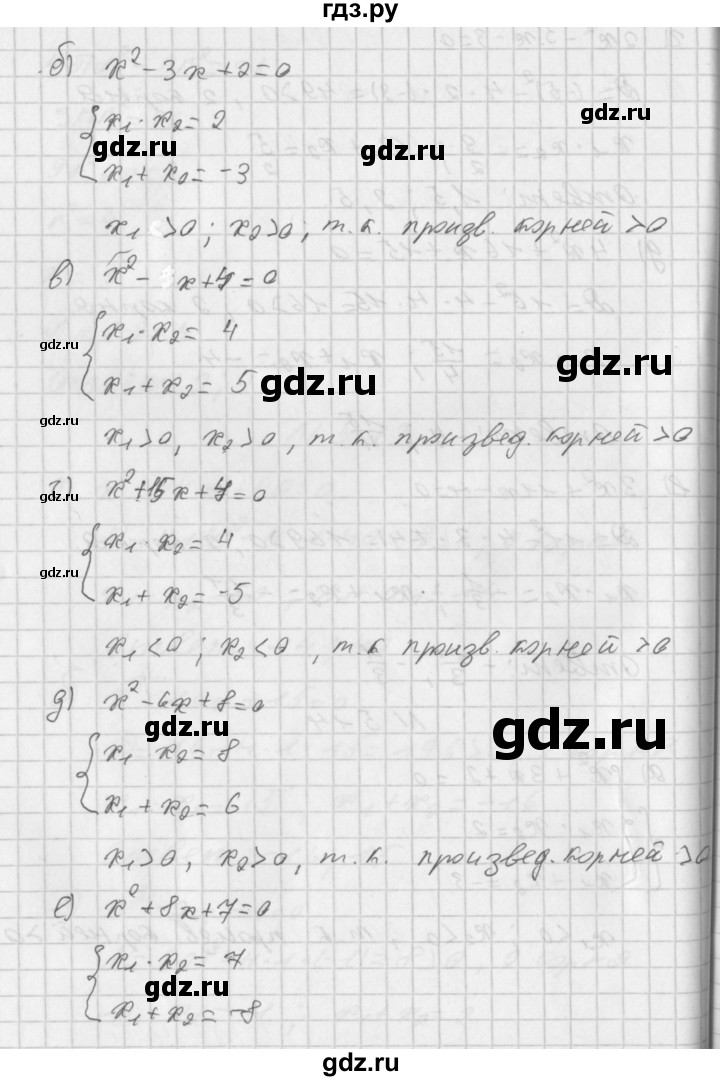 гдз.ру
б) x² - 3x + 2 = 0
x₁ · x₂ = 2
gdz.ru
gdz.ru
gdz.ru
x₁ + x₂ = -3
x₁ > 0 ; x₂ > 0 ; т.к. произв. корней > 0
в) x² - x + 4 = 0
x₁ · x₂ = 4
gdz.ru
gdz.ru
x₁ + x₂ = 5
gdz.ru
gdz.ru
x₁ > 0, x₂ > 0, т.к. произвед. корней > 0
г) x² + 15x + 4 = 0
gdz.ru
x₁ · x₂ = 4
gdz.ru
x₁ + x₂ = -5
x₁ < 0 ; x₂ < 0 , т.к. произв. корней > 0
д) x² - 6x + 8 = 0
gdz.ru
gdz.ru
x₁ x₂ = 8
x₁ + x₂ = 6
x₁ > 0, x₂ > 0, т.к. произвед. корней > 0
е) x² + 8x + 7 = 0
x₁ · x₂ = 7
gdz.ru
gdz.ru
x₁ + x₂ = -8
gdz.ru